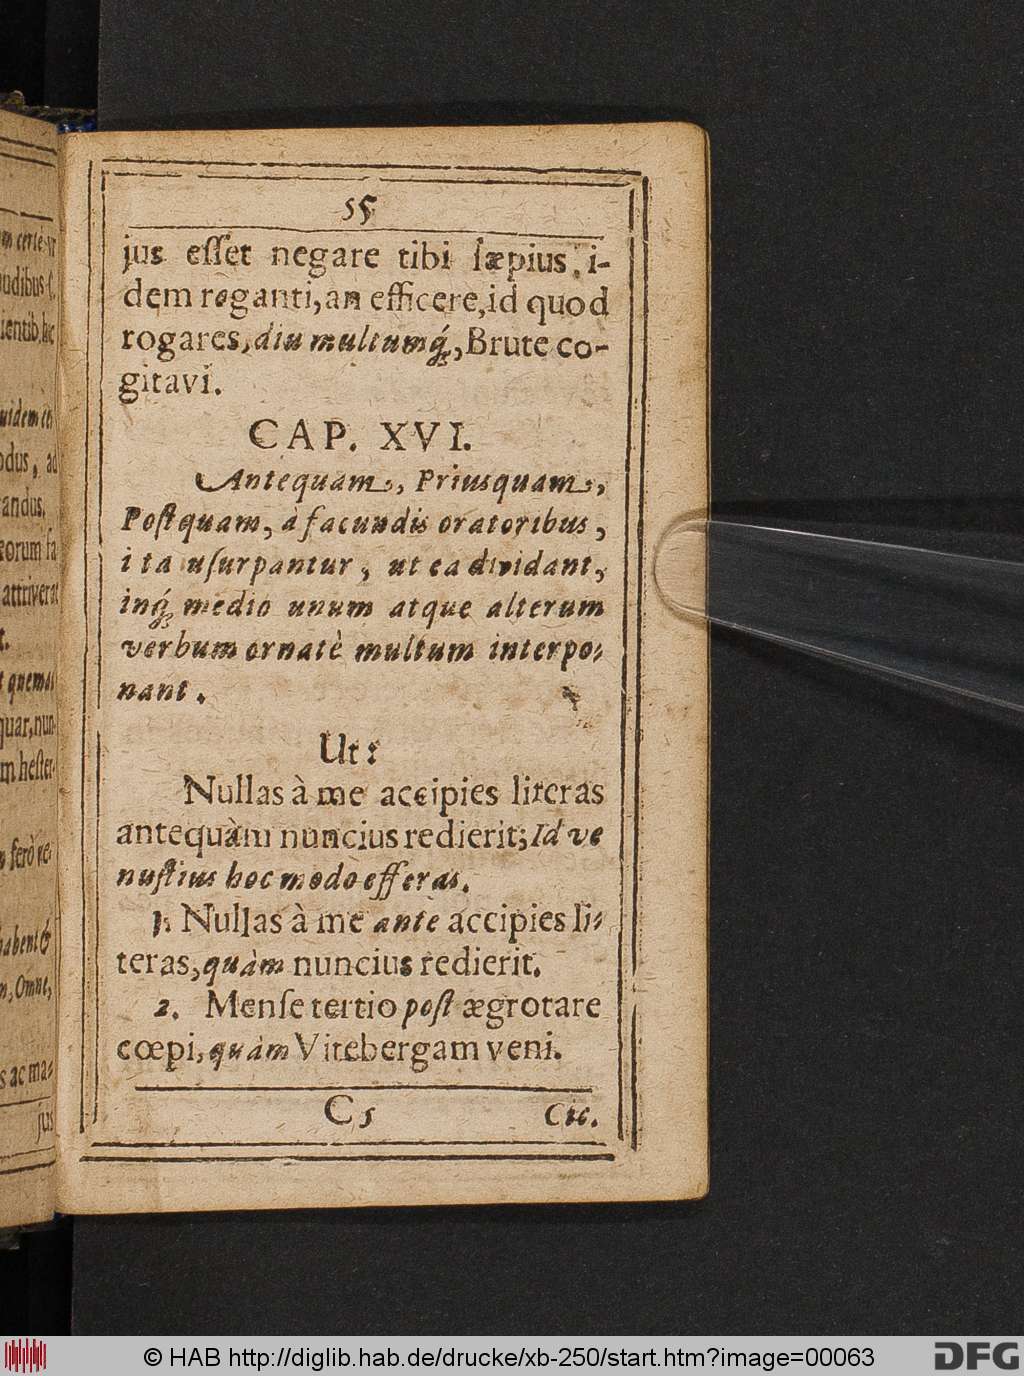 55
jus eſſet negare tibi ſæpius, i-
dem roganti, an efficere, id quod
rogares, diu multumq́;, Brute co-
gitavi.
CAP. XVI.
Antequam, Priusquam,
Poſtquam, à facundis oratoribus,
ita uſurpantur, ut ea dividant,
inq́; medio unum atque alterum
verbum ornatè multum interpo-
nant.
Ut:
Nullas à me accipies literas
antequàm nuncius redierit; Id ve
nuſtius hoc modo efferas.
1. Nullas à me antè accipies li-
teras, quàm nuncius redierit.
2. Menſe tertio poſt ægrotare
cœpi, quàm Vitebergam veni.
C 5 Cic.
© HAB http://diglib.hab.de/drucke/xb-250/start.htm?image=00063
DFG